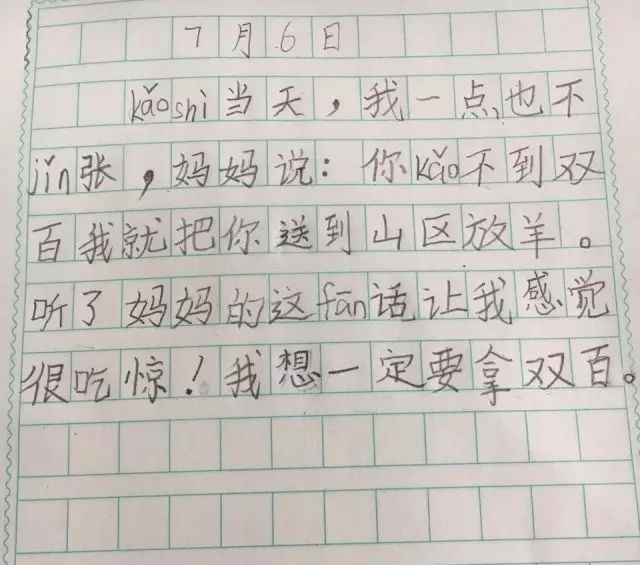 7月6日
kǎoshì当天，我一点也不
jǐn张，妈妈说：你kǎo不到双
百我就把你送到山区放羊。
听了妈妈的这fān话让我感觉
很吃惊！我想一定要拿双百。